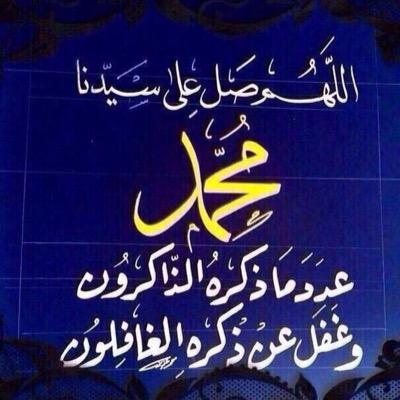 اللَّهُم صَل عِلى سَيِّدنا
مُحمَّد
عدَدَ مَا ذكرهُ الذّاكرُون
وغَفَلَ عنْ ذكرهِ الغافِلوُن